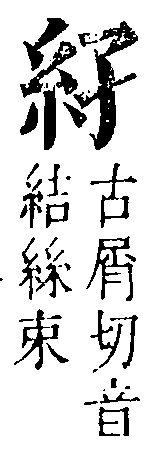 古屑切音
結絲束